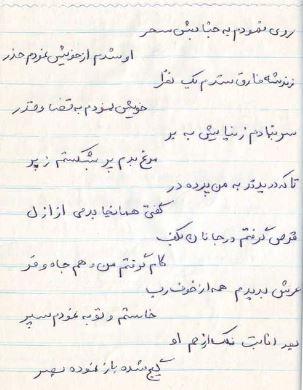 روی نمودم به جنابش سحر
او شدم از خویش نمودم حذر
فارق شدم یک نفر
خویش نمودم به قضا و قدر
سر نهادم ز نیایش به بر
مرغ بدم پر شکستم ز پر
تا که در به من پرده در
گفتی همانجا بدمی از ازل
قرص گرفتم در جانان بکف
کام گرفتم من و هم جاه و فر
عرش بدیدم همه از خوف رب
خاستم و توبه نمودم سپر
بعد انابت از هم او
گیج شده باز نموده بصر